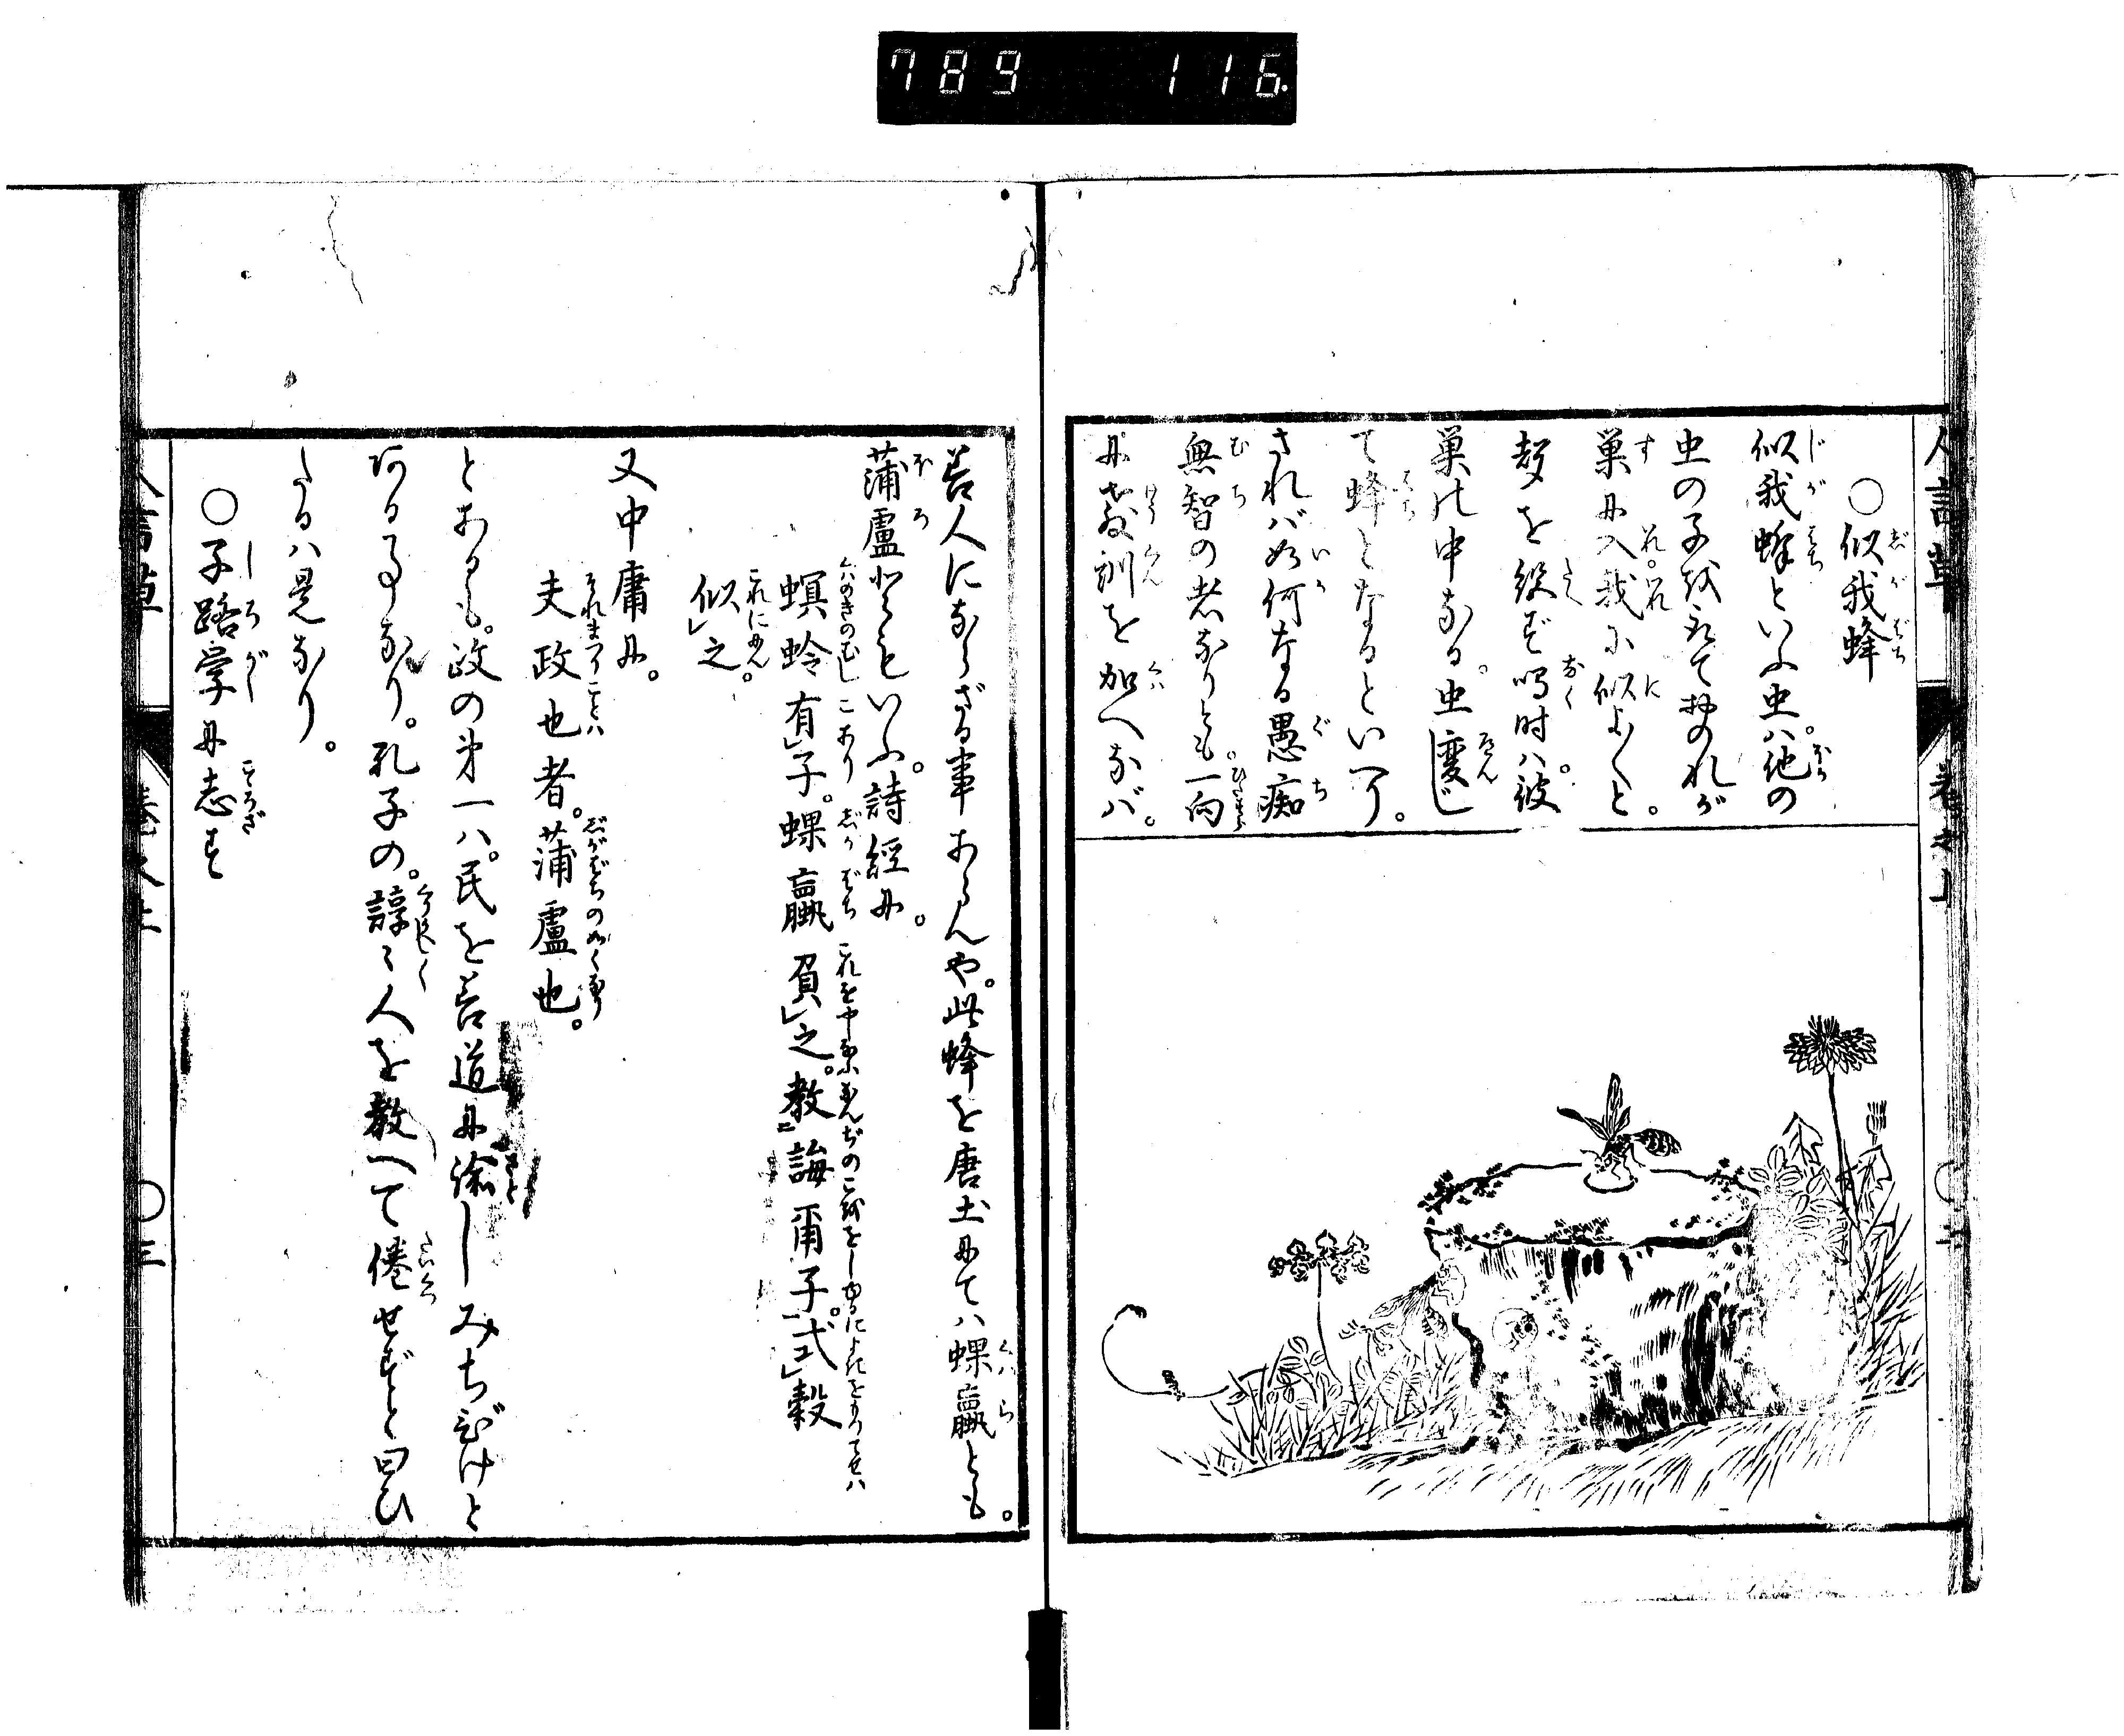 789 116
○似我蜂
似我蜂といふ虫ハ。他の
虫の子を取て。おのれが
巣に入。我に似よ〳〵と。
声を絶ず鳴時ハ。彼
巣の中なる。虫変じ
て蜂となるといへり。
されバ如何なる愚痴
無智の者なりとも。一向
に教訓を加へなバ。
善人にならざる事あらんや。此蜂を唐土にてハ蜾蠃とも。
蒲盧ともいふ。詩経に。
螟蛉有子。蜾蠃負之。教誨爾子。式穀
似之。
又中庸に。
夫政也者。蒲盧也。
とあるも。政の第一ハ。民を善道に諭しみちびけと
ある事なり。孔子の。諄々人を教へて倦せずと曰ひ
たるハ是なり。
○子路学に志す